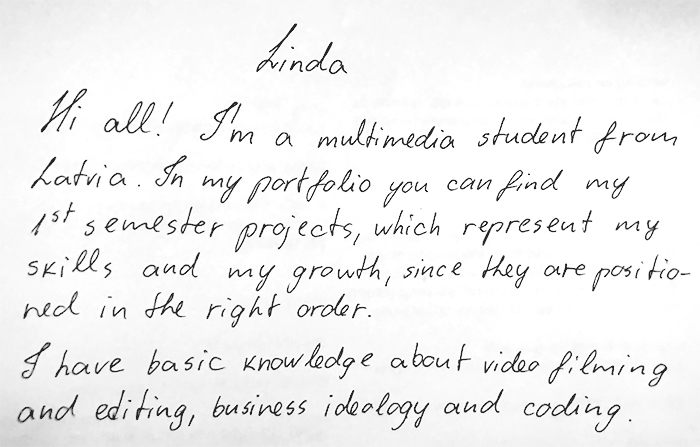 Linda
Hi all! I'm a multimedia student from
Latvia. In my portfolio you can find my
1st semester projects, which represent my
skills and my growth, since they are positio-
ned in the right order.
I have basic knowledge about video filming
and editing, business ideology and coding.